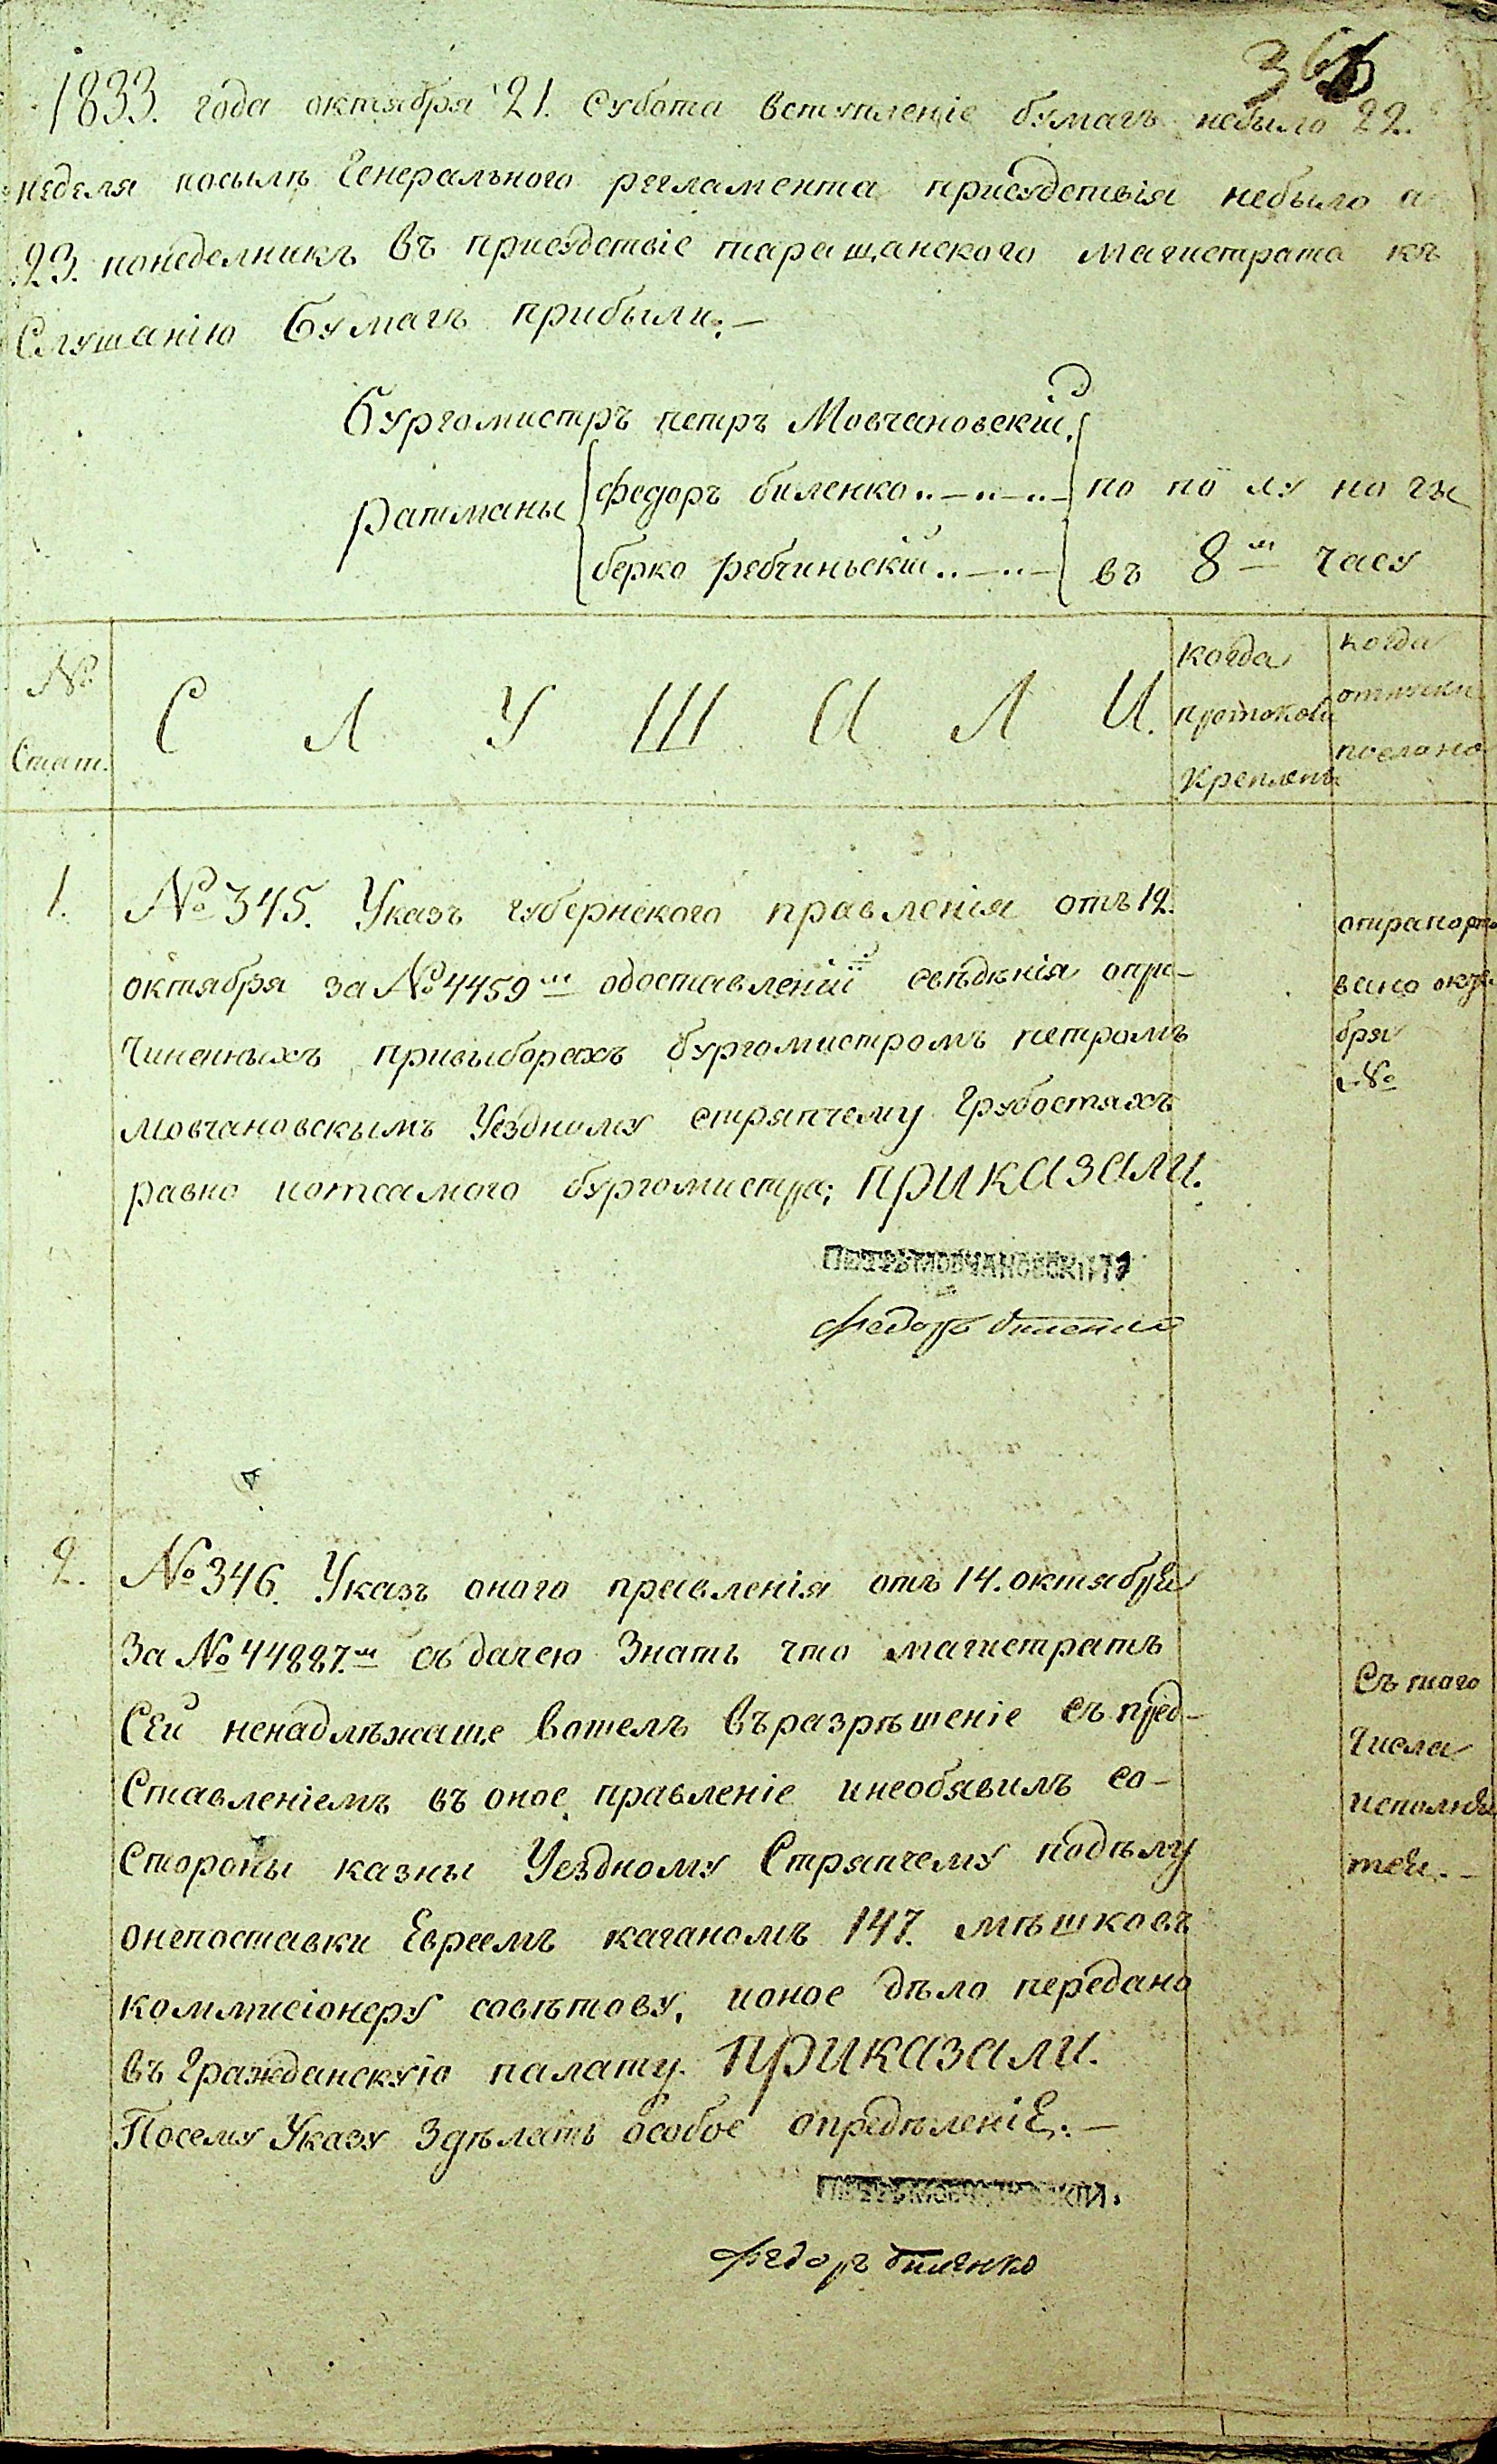 1833. года октября 21. субота вступленіе бумагъ небыло 22.
неделя посылѣ Генеральнаго регламента присудствія небыло а
23. понеделникъ въ присудствіе таращанского магистрата къ
Слушанію бумагъ прибыли:—
Бургомистръ петръ Мовчановскій.
Ратманы
федоръ биленко..—..—..—
берко ребчиньскій..—..—
по полуночы
въ 8м часу
№ Стат.
С Л У Ш А Л И.
когда протоколъ Крепленъ
когда отпуски послано
1. №345. Указъ губернского правленія отъ 12.
октября за №4459м одоставленіи свѣдѣнія опри-
чиненныхъ привыборахъ бургомистромъ петромъ
мовчановскымъ Уездному стряпчему грубостяхъ
равно иотсамого бургомистра; ПРИКАЗАЛИ.
отрапорто
вано октя
бря
№
ПЕТРЪ МОВЧАНОВСКІЙ
федоръ биленко
2. №346. Указъ оного правленія отъ 14. октября
За №44887.м съ дачею Знать что магистратъ
Сей ненадлѣжаще вошелъ въразрѣшеніе съ пред-
Ставленіемъ въ оное правленіе инеобявилъ со-
Стороны казны Уездному Стряпчему подѣлу
онепоставки Евреемъ каганомъ 147. мѣшковъ
коммисіонеру совѣтову, ионое дѣло передано
въ Гражданскую палату. ПРИКАЗАЛИ.
Посему Указу Здѣлать особое опредѣленіЕ.—
Съ того
Числа
исполня
теи.—
ПЕТРЪ МОВЧАНОВСКІЙ.
федоръ биленко